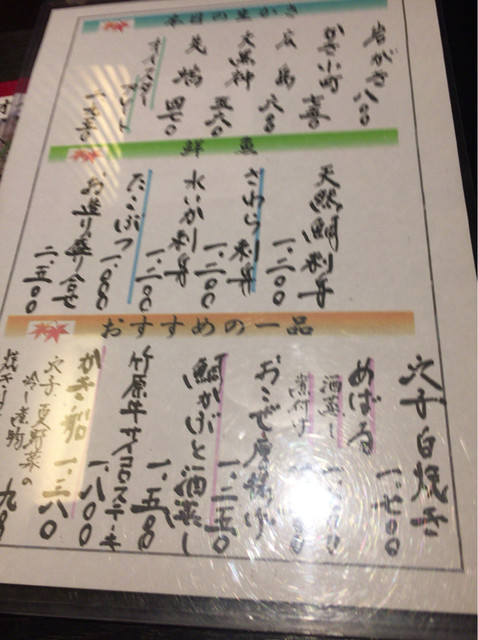 本日の生かき
岩がき 八〇〇
かき小町
広島 六八〇
大黒神 五六〇
先端 四七〇
オイスター
プレート
鮮魚
天然鯛刺身 一、二〇〇
さわら刺身 一、二〇〇
水いか刺身 一、二〇〇
たこぶつ 一、〇〇〇
お造り盛り合せ 二、五〇〇
おすすめの一品
穴子白焼き 一、七〇〇
めばる
酒蒸し
煮付け
おこぜ唐揚げ
鯛かぶと酒蒸し 一、二五〇
竹原牛サイコロステーキ 一、五八〇
かき船 一、八〇〇
穴子、夏野菜の
冷し煮物 一、三八〇